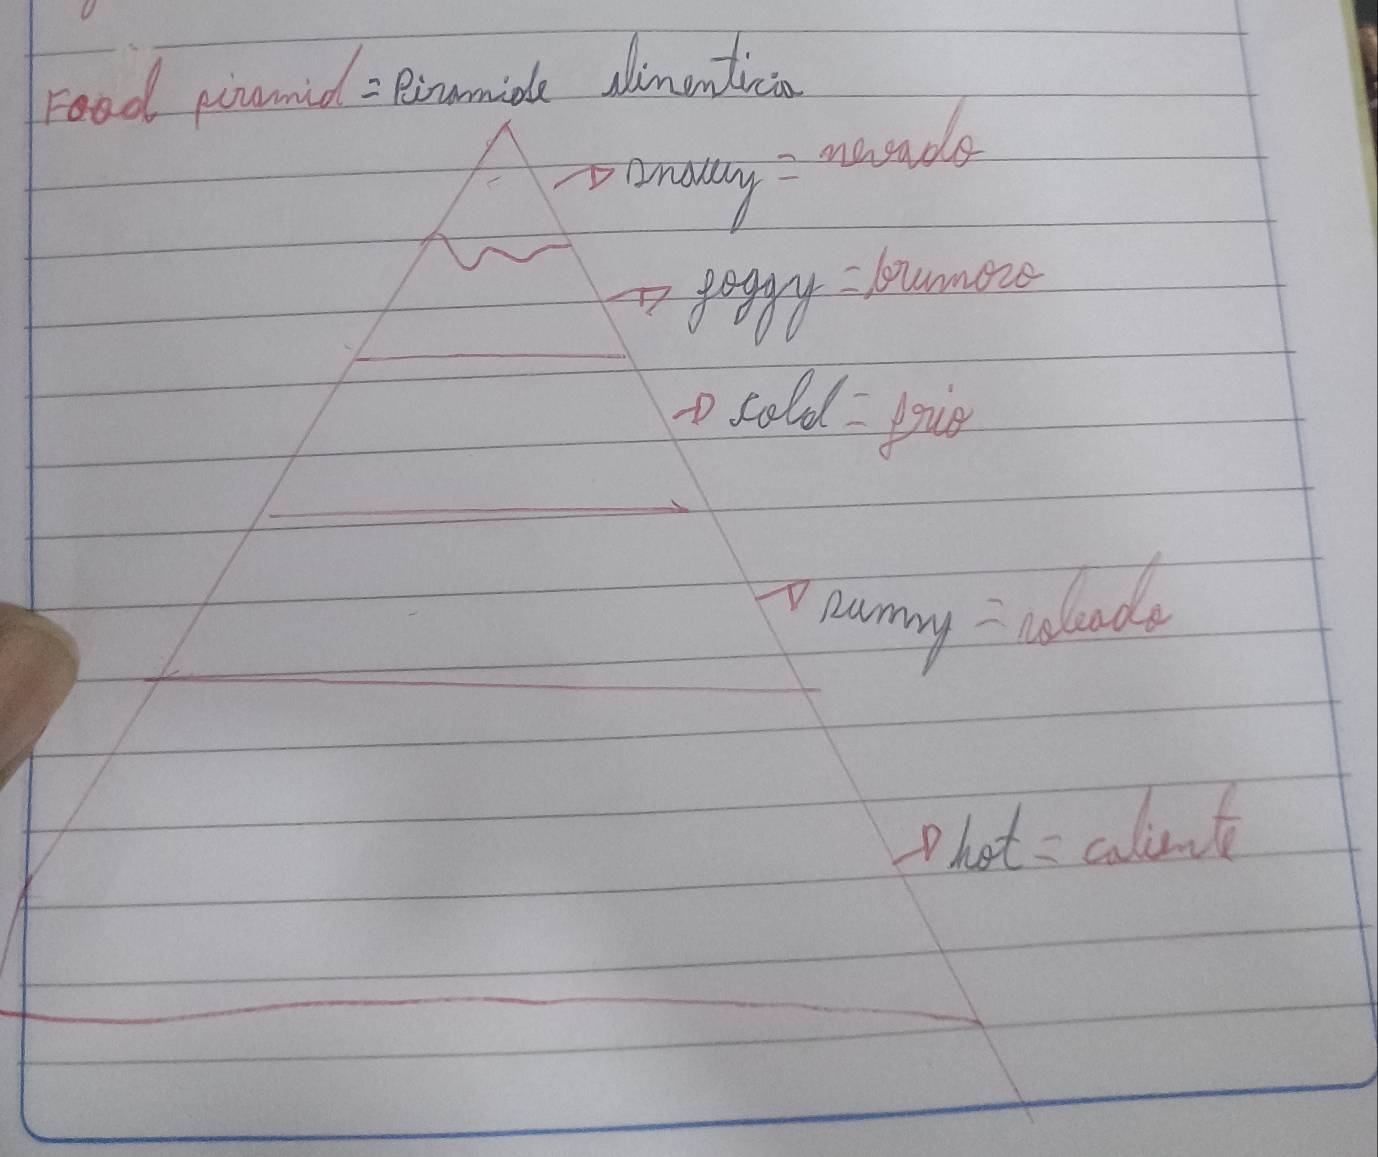 Food piramid = Piramide alinenticia
snowy = nevado
foggy = brumozo
cold = frio
sunny = soleado
hot = caliente